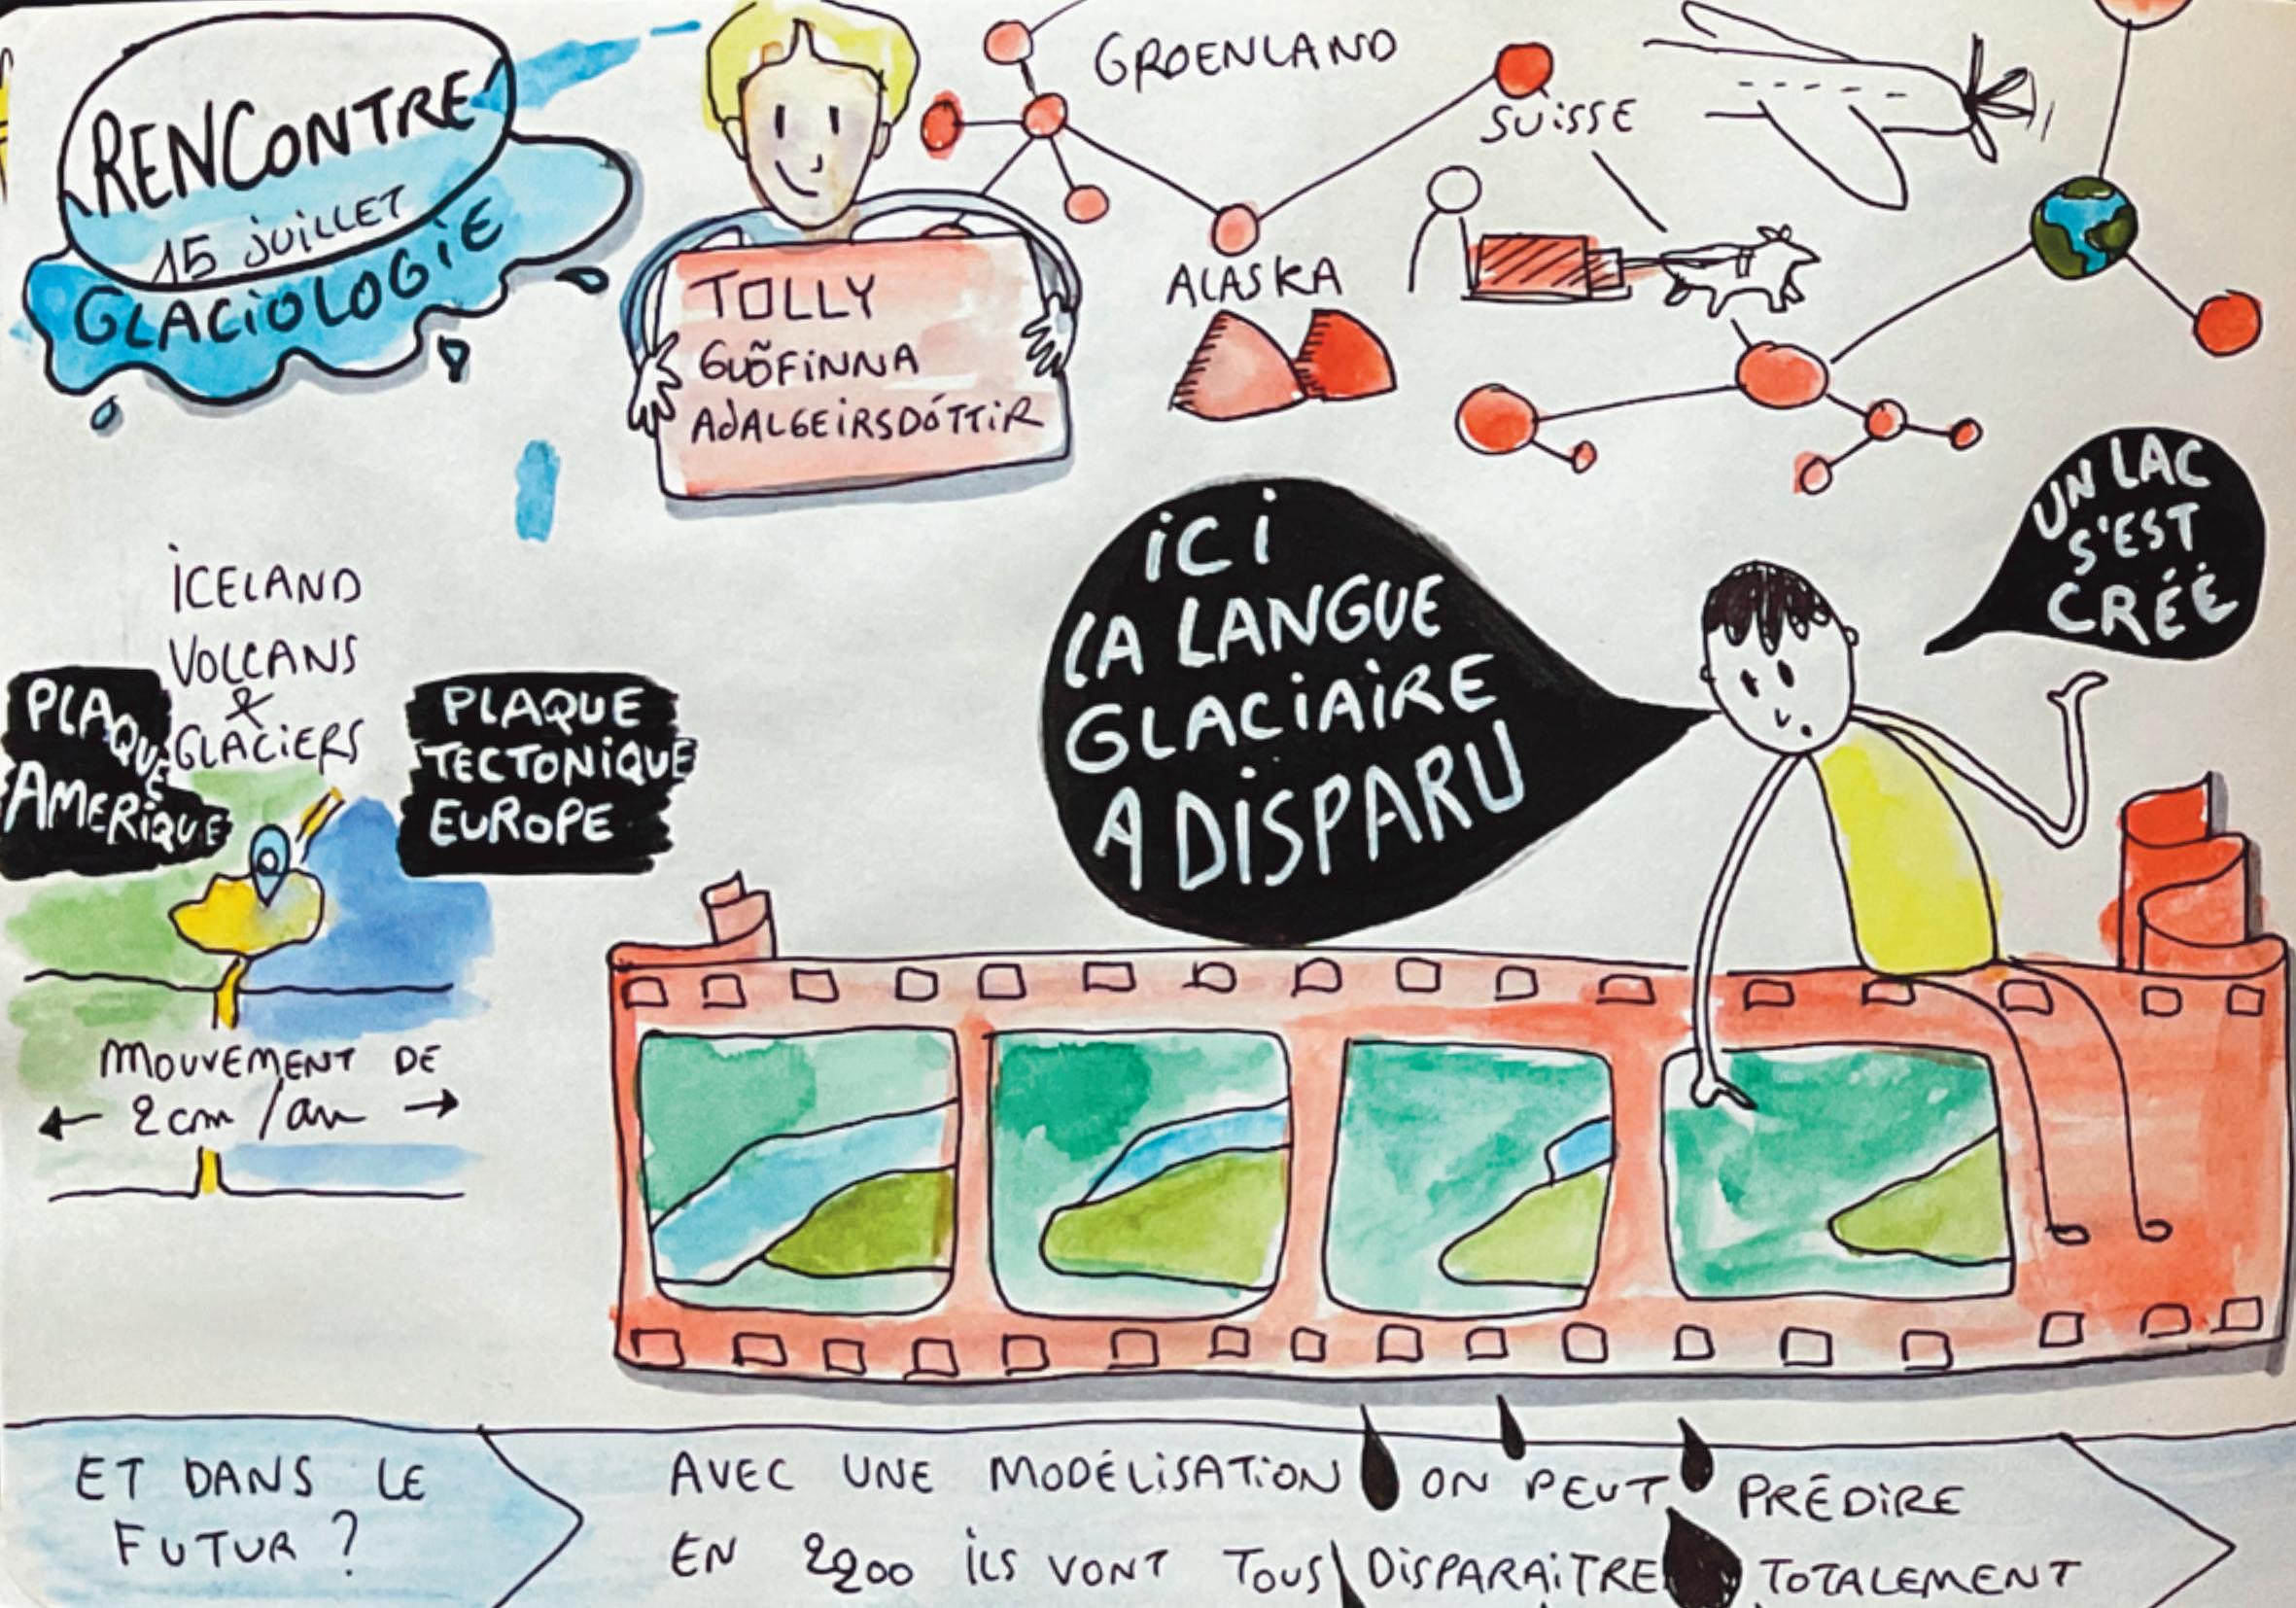 RENCONTRE
15 juillet
GLACIOLOGIE
TOLLY
GUÕFINNA
ADALGEIRSDÓTTIR
GROENLAND
SUISSE
ALASKA
ICELAND
VOLCANS
&
GLACIERS
PLAQUE
AMERIQUE
PLAQUE
TECTONIQUE
EUROPE
MOUVEMENT DE
← 2cm/an →
ICI
LA LANGUE
GLACIAIRE
A DISPARU
UN LAC
S'EST
CRÉÉ
ET DANS LE
FUTUR ?
AVEC UNE MODÉLISATION ON PEUT PRÉDIRE
EN 2200 ILS VONT TOUS DISPARAITRE TOTALEMENT